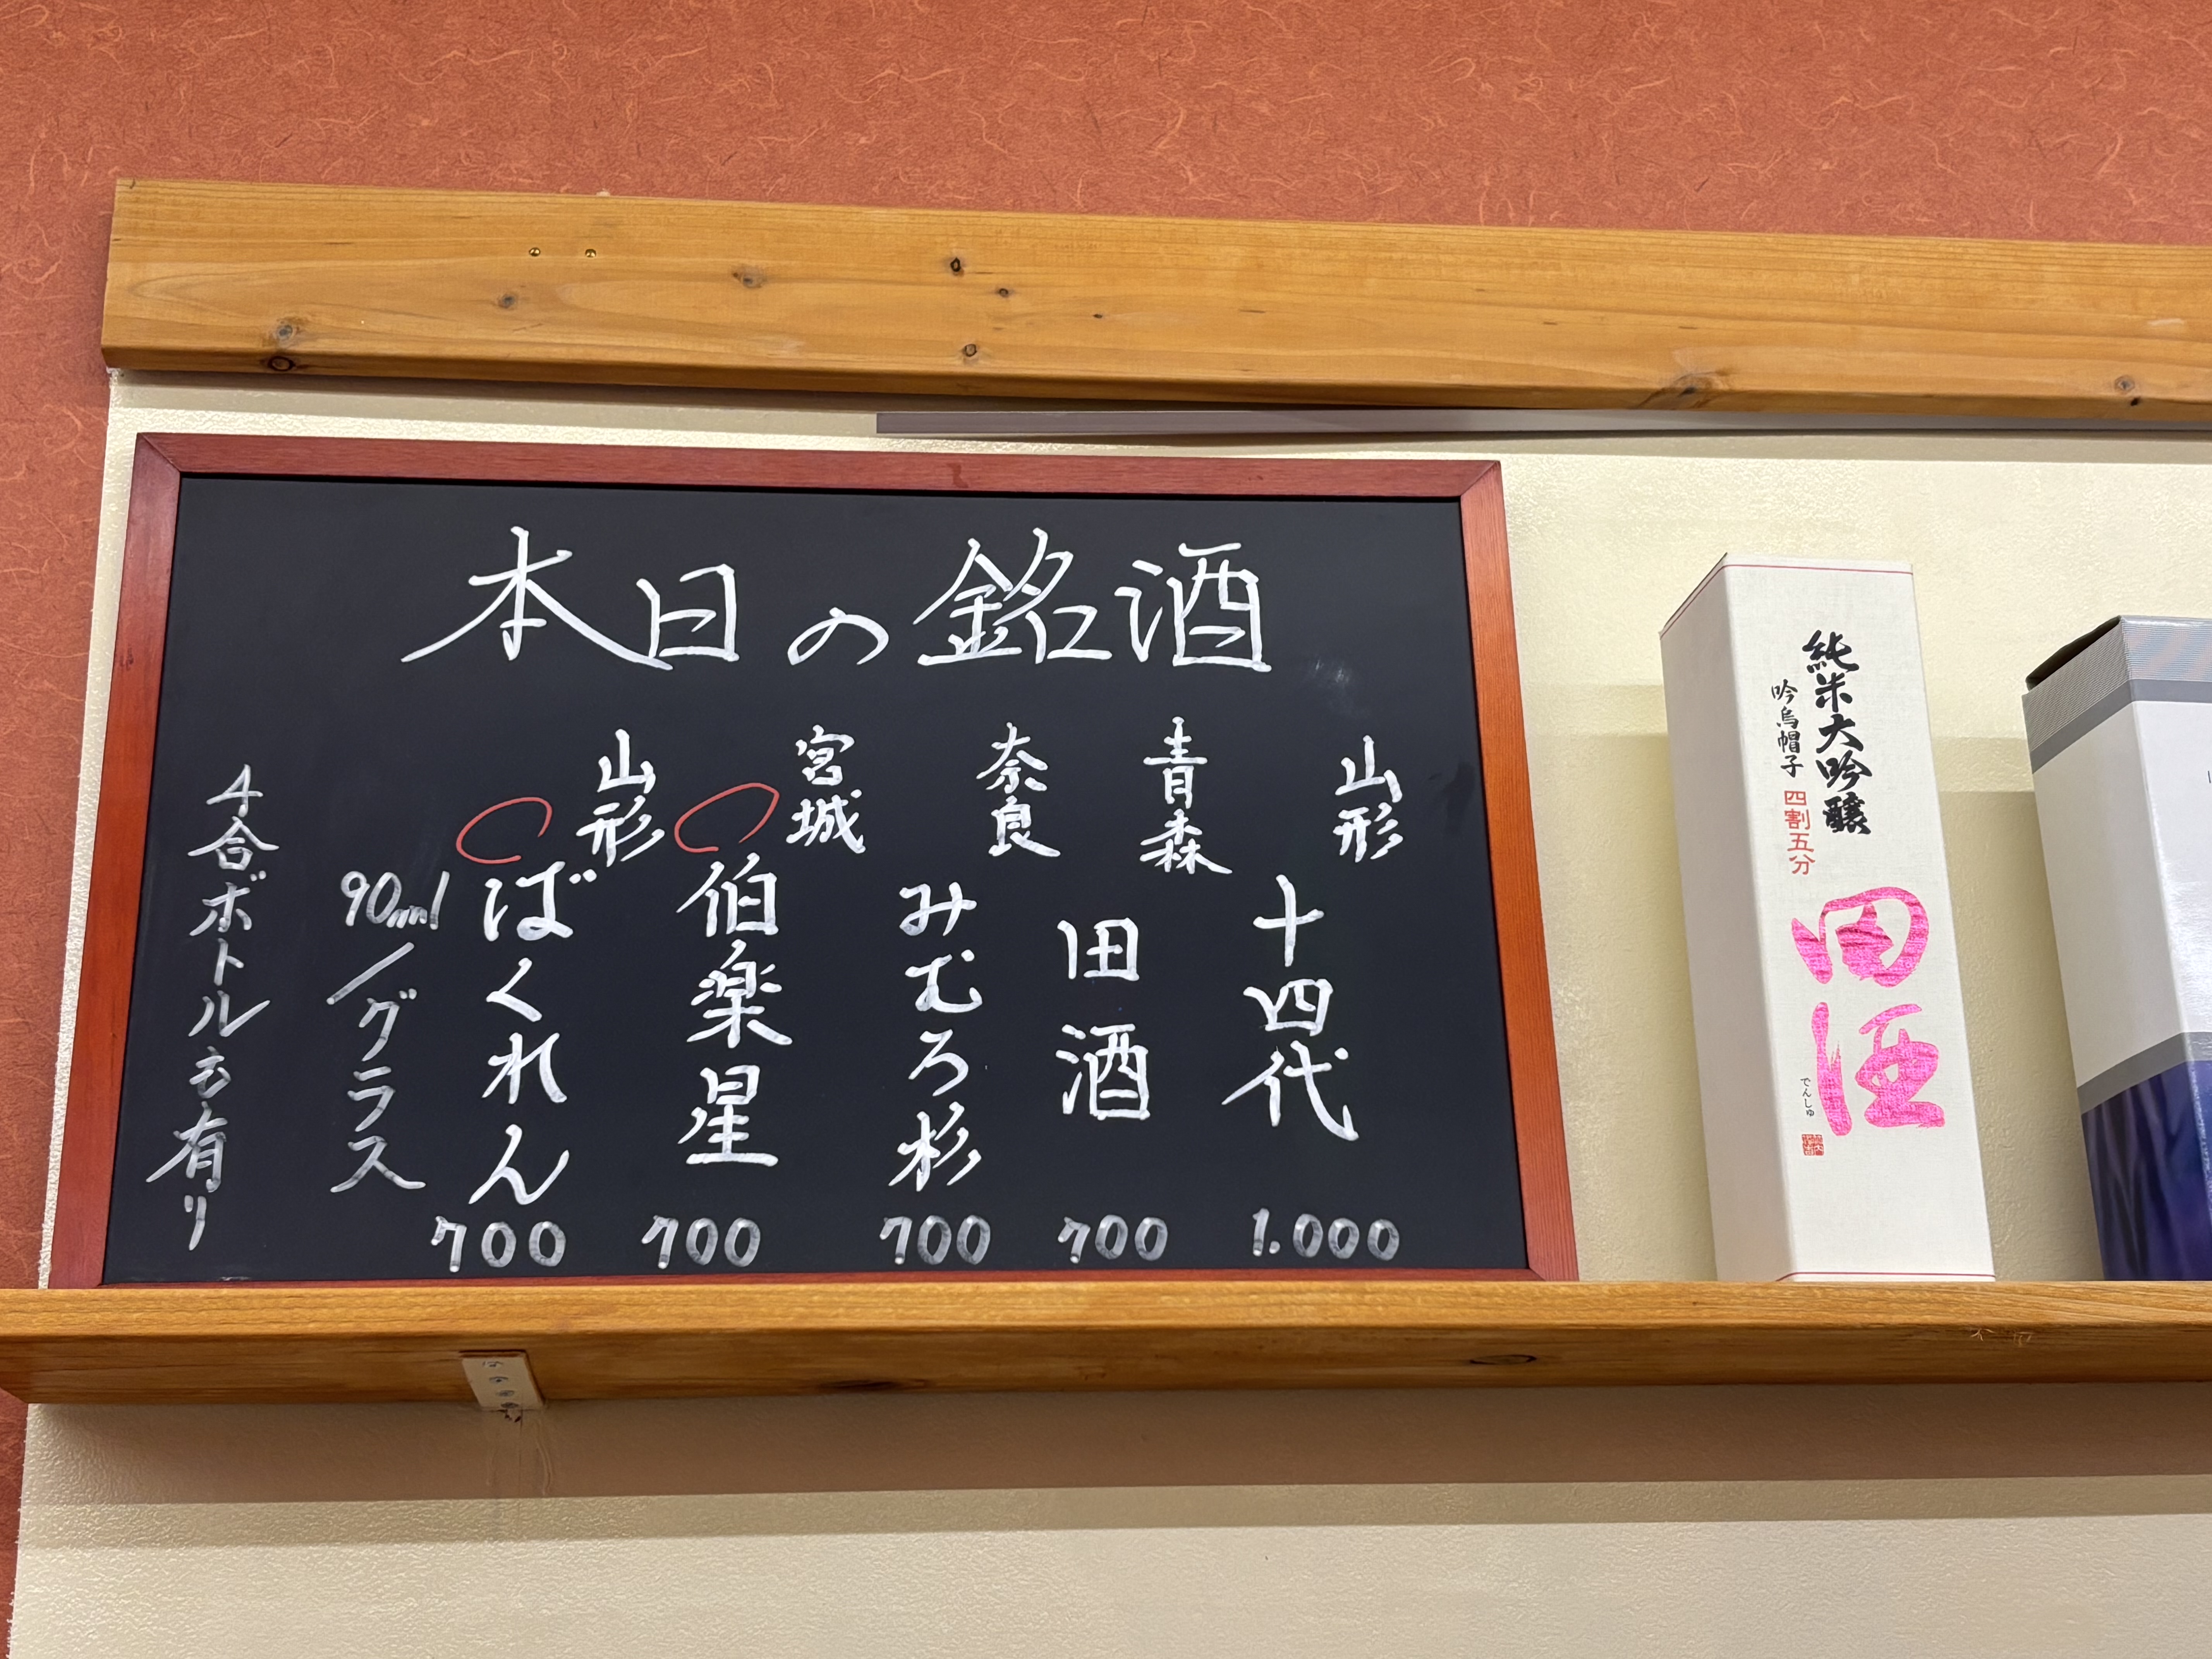 本日の銘酒
山形
十四代
1.000
青森
田酒
700
奈良
みむろ杉
700
宮城
伯楽星
700
山形
ばくれん
700
90ml/グラス
4合ボトルも有り
純米大吟醸
吟烏帽子
四割五分
田酒
でんしゅ